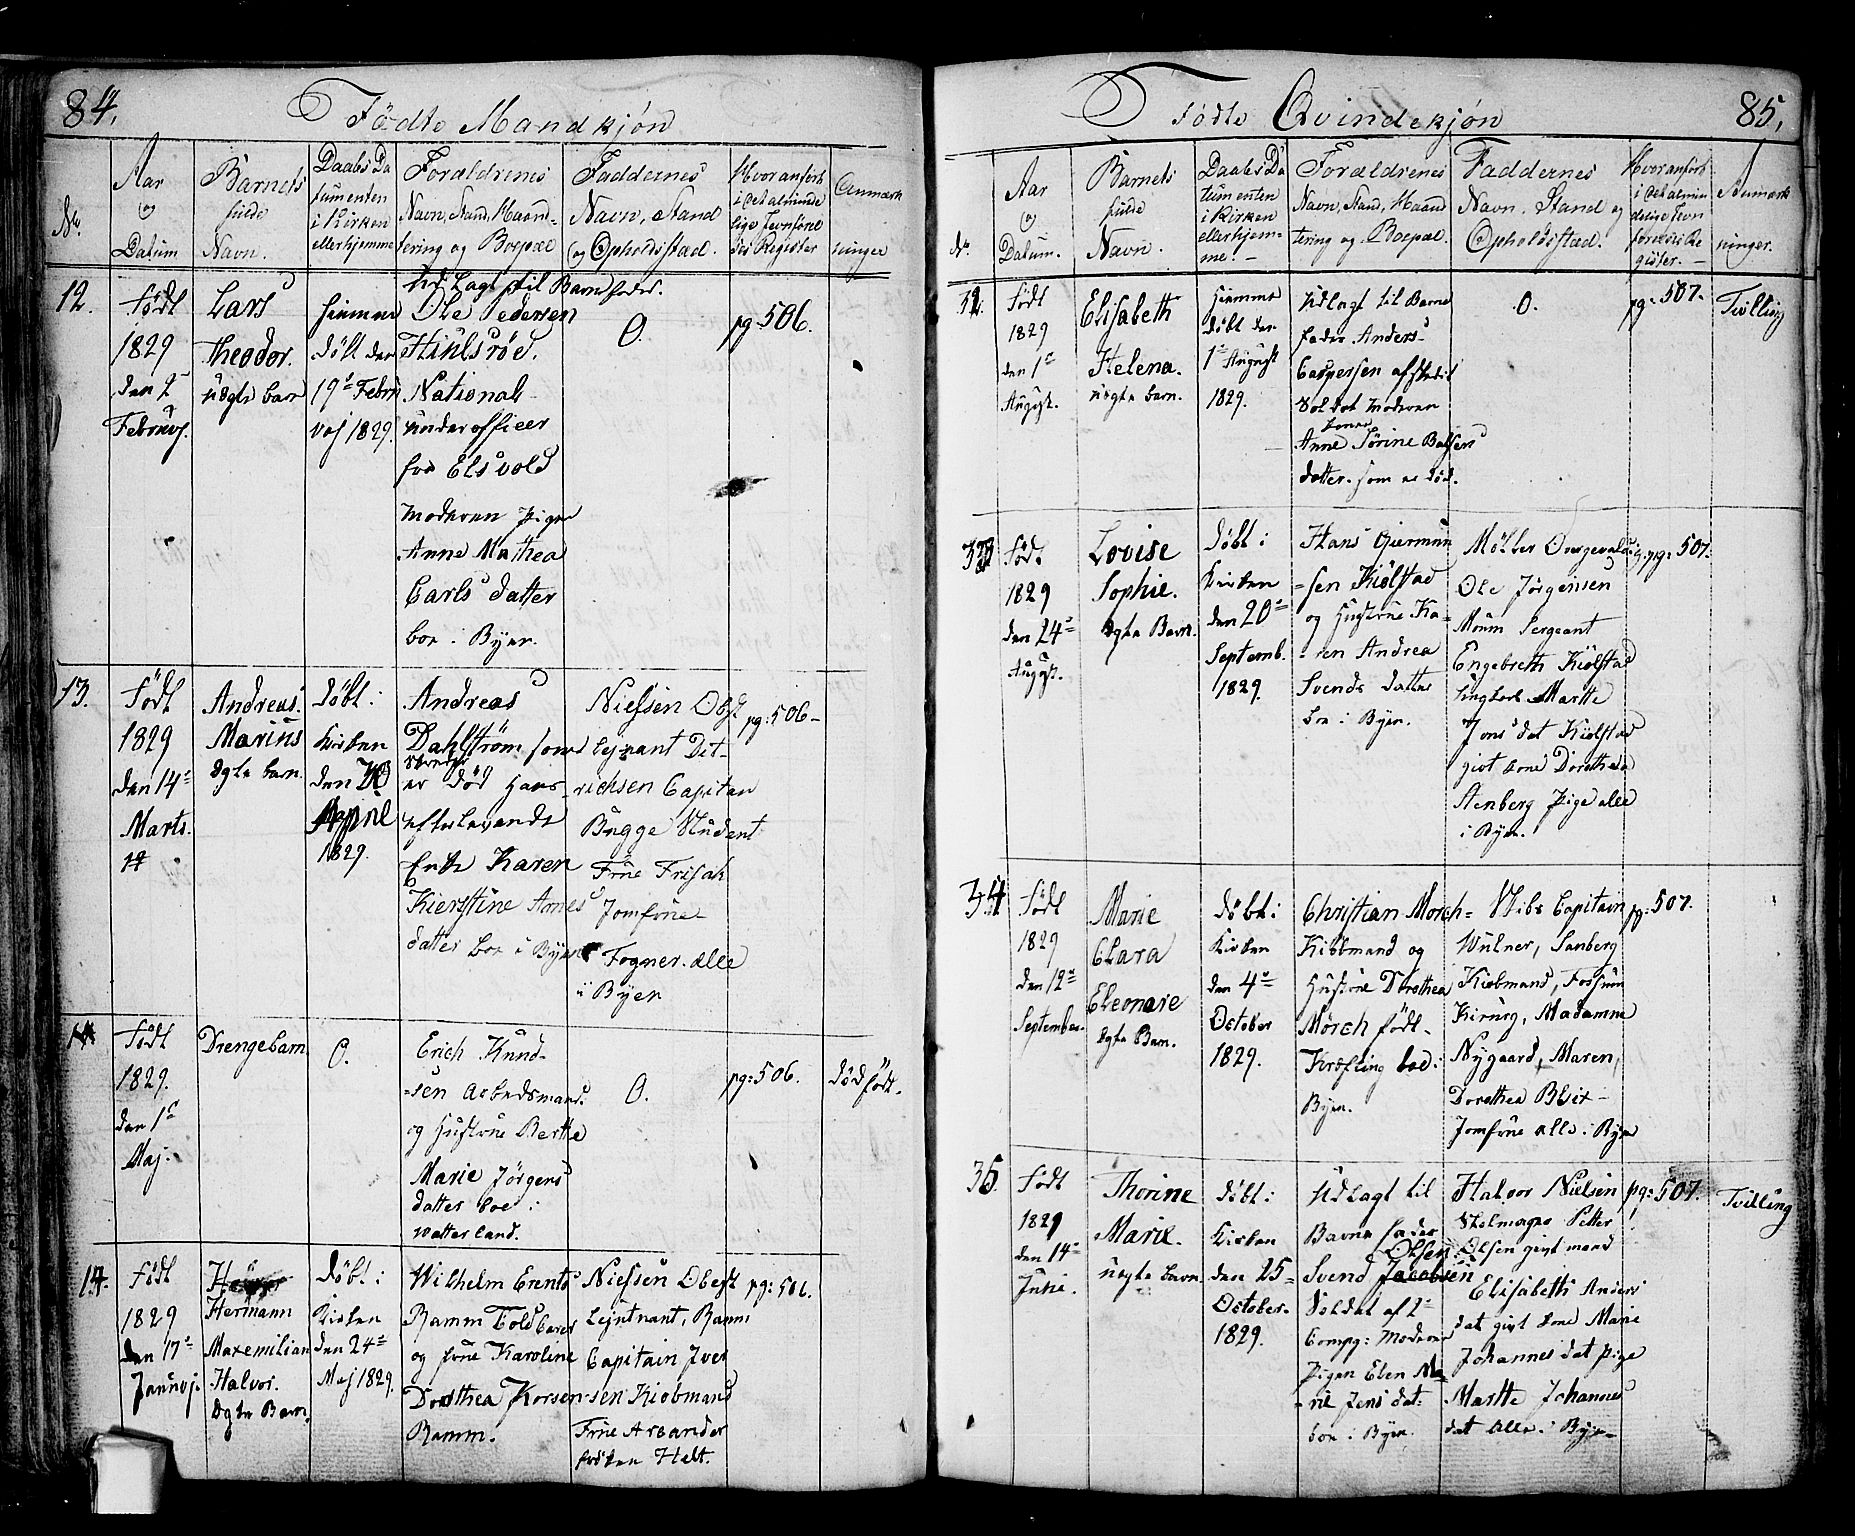 84.
Fødte Mandkjøn
No.
Aar
og
Datum
Barnets
fulde
Navn.
Daabs Da
tumenten
i Kirken
ellerhjemme
Forældrenes
Navn, Stand, Haand-
tering og Boepæl
Faddernes
Navn, Stand
og Opholdsstæd.
Hvor anført
i det alminde
lige Jevnføre
lses Register
Anmærk
ninger
12.
født
1829
den 2
Februarj.
Lars
Theodor.
uægte barn
hiemme
døbt den
19de Febru
varj 1829.
Udlagt til Barnefader.
Ole Pedersen
National
underofficer
fra Eidsvold
Moderen Pigen
Anne Mathea
Carls datter
boe i Byen.
O.
pg 506.
13.
Født
1829
den 14de
Marts.
Andreas.
Marius
Ægte barn.
Døbt i
Kirken
den
April
1829.
Andreas
Dahlstrøm
er død hans
efterlevende
Enke Karen
Kierstine Arnes
datter boe i Byen
Nielsen Obst
lejnant Det-
richsen Capitan
Bugge Student
Frue Frisak
Jomfrue
Fogner. alle
i Byen
pg: 506-
14
Født
1829.
den 1de
Maj.
Drengebarn
O.
Erich Knud-
-sen Arbeidsmand.
og Hustrue Berthe
Marie Jørgens
datter boe i
Watterland.
O.
pg: 506.
død
født.
14.
Født
1829
den 17de
Januarj.
Hermann
Maxemilian
Halvor.
Ægte Barn.
Døbt i
Kirken
den 24de
Maj 1829.
Wilhelm Erents
Ramm Told
og frue Karoline
Dorothea Korsen
Ramm.
Nielsen Oberst
Lejntnant, Ramm
Capitain Iver
-sen Kiøbmand
Frue Arbander
frøken Helt.
pg: 506.
85.
Fødte Qvindekjøn
No.
Aar
og
Datum.
Barnets
fulde
Navn.
Daabs Da
tumenten
i Kirken
ellerhjem-
me.-
Forældrenes
Navn, Stand, Haand
tering og Boepæl.
Faddernes
Navn. Stand og
Opholdsstæd.
Hvor anført
i det almin
delige Jevn
førelses Re
gister.-
Anmærk
ninger.
født
1829
den 1de
August.
Elisabeth
Helena.
uægte barn.
Hiemme
døbt den
1de August
1829.
Udlagt til Barne
fader Anders
Caspersen afskediit
Soldat Moderen
konen
Anne Sørine
datter. som er død.
O.
pg: 507.
Tvilling
født.
1829
den 24de
August.
Lovise
Sophie.
Ægte Barn.
Døbt i
Kirken
den 20de
Septemb.
1829.
Hans Giermun
-sen Kiølstad
og Hustrue Ka-
-ren Andrea
Svends datter
boe i Byen.
Ole Jørgensen
Moum Sergeant
Engebreth Kiølstad
Ungkarl Marthe
Jons dat Kiølstad
givt kone Dorothea
Aenberg Pige alle
i Byen.
pg: 507.
34
Født
1829
den 12te
September.
Marie
Clara
Eleonore
Ægte Barn.
Døbt i
Kirken
den 4de
October
1829.
Christian Mørch
Kiøbmand og
Hustrue Dorothea
Mørch født-
Kræfting boe i
Byen.
Stibs Capitain
Wulner, Sanberg
Kiøbmand, Fossum
Kirurg, Madamme
Nygaard, Maren,
Dorothea Blix-
Jomfrue alle i Byen
pg: 507.
35.
Født
1829
den 14de
Julie.
Thorine
Marie.
uægte barn.
Døbt i
Kirken
den 25de
October.
1829.
Udlagt til
Barne fader
Olsen
Svend Jacobsen
Soldat af 2de
Compg: Moderen
Pigen Elen Ma-
-rie Jens dat:
boe i Byen.
Halvor Nielsen
Stolmager Petter
Olsen givt mand
Elisabeth Anders
dat givt kone Marie
Johannes dat pige
Marthe Johannes
dat alle i Byen
pg: 507.
Tvilling